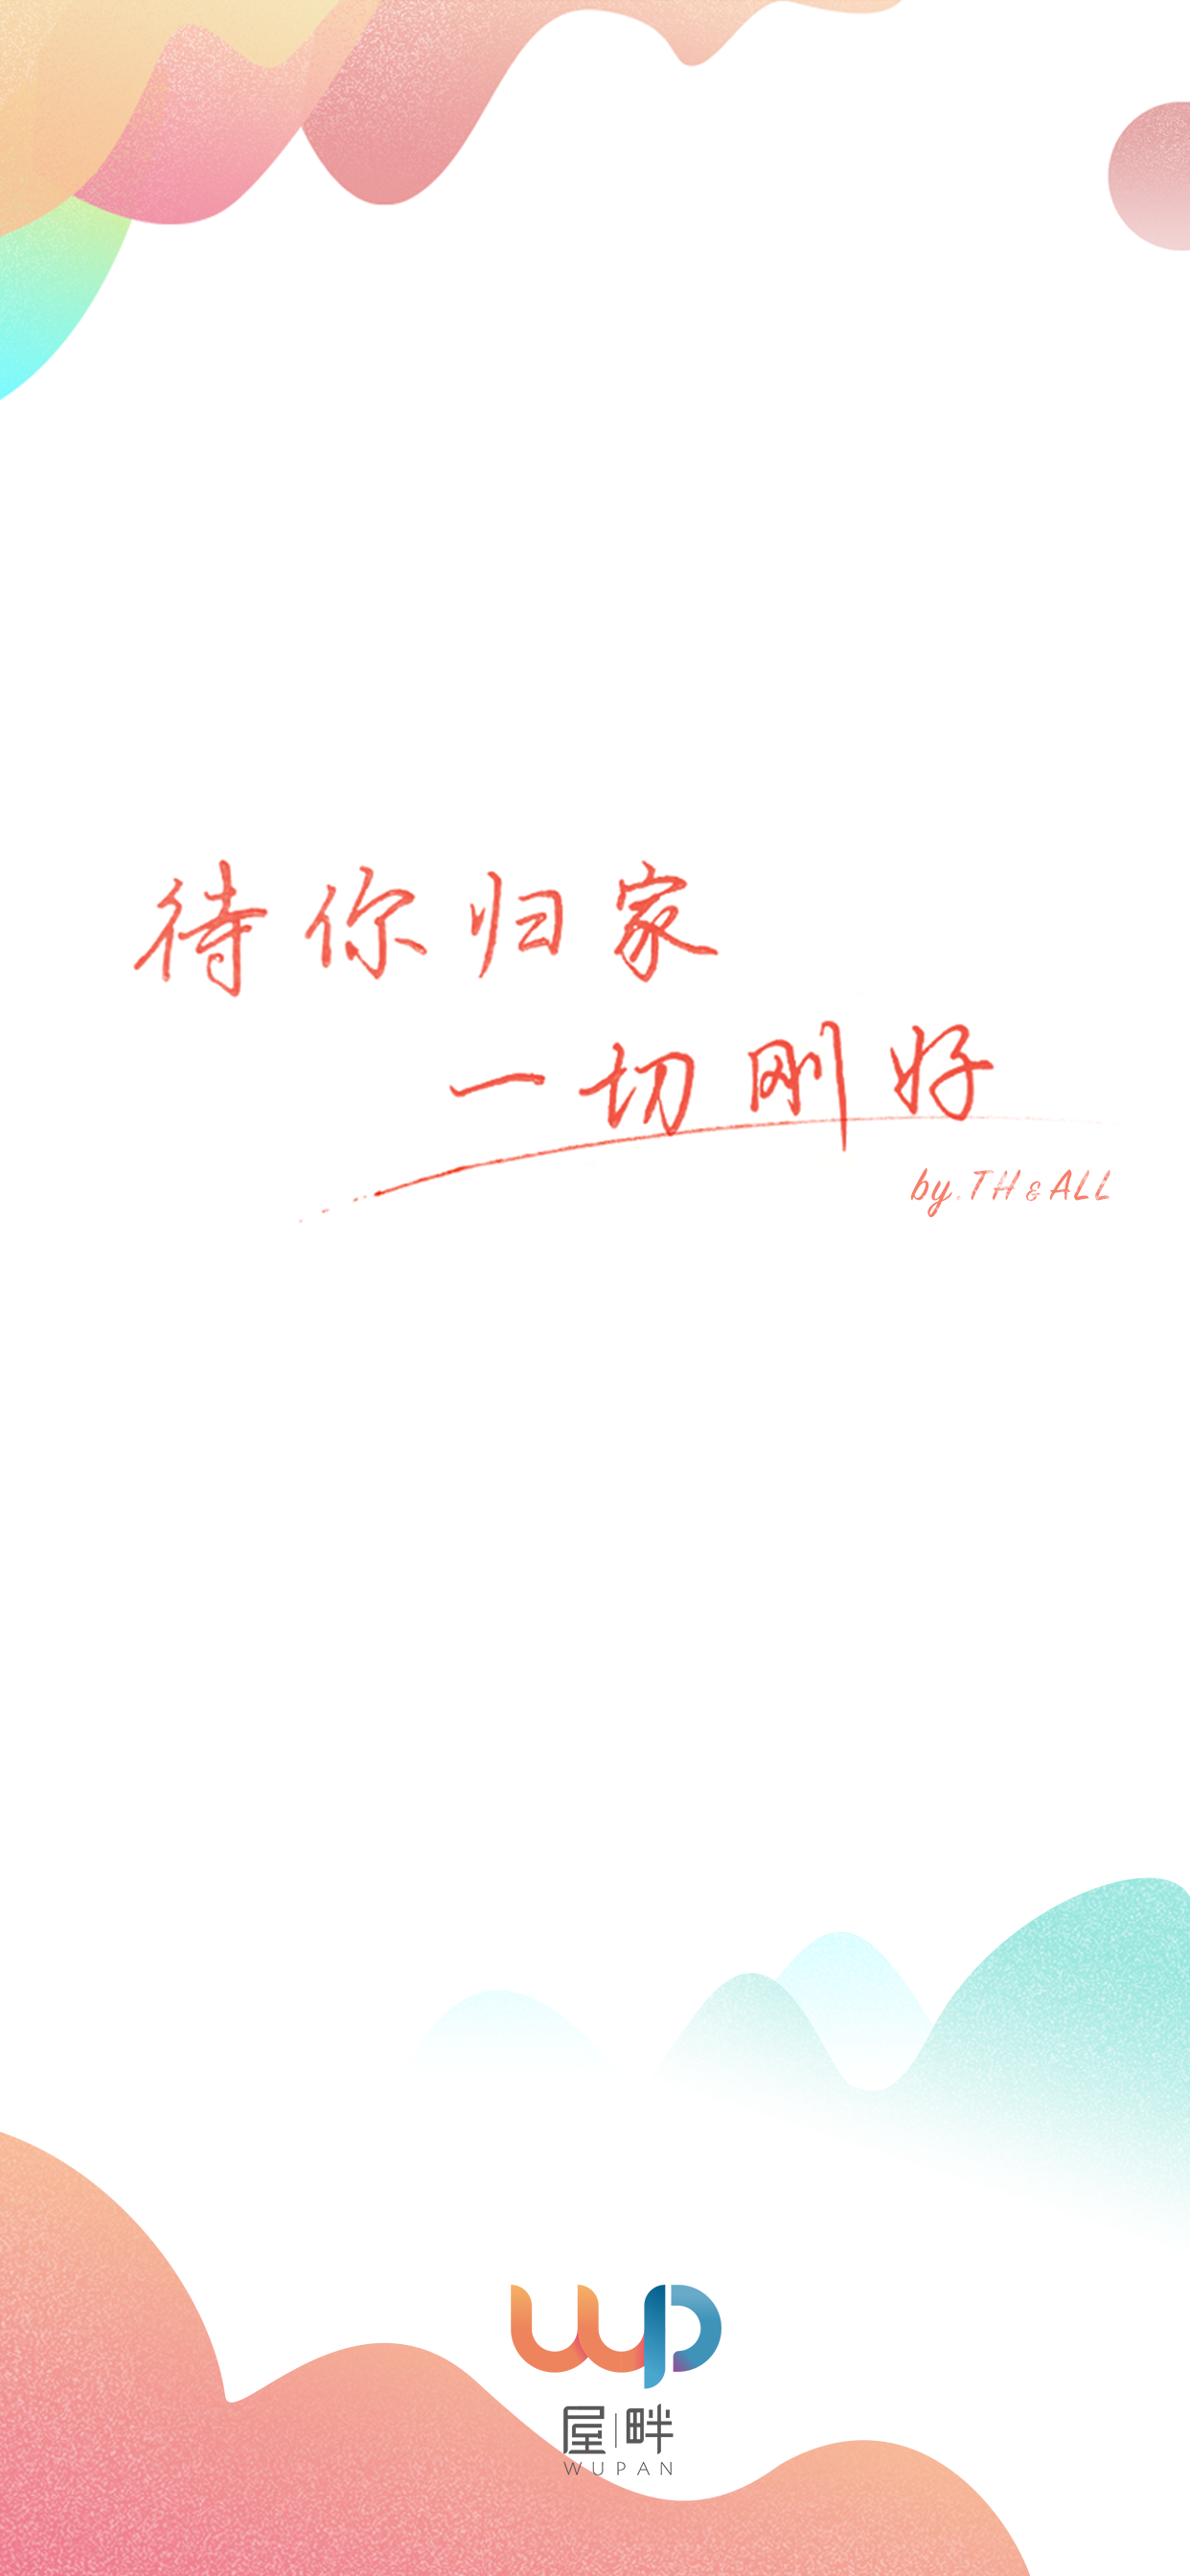 待你归家
一切刚好
by.TH&ALL
wp
屋畔
WUPAN